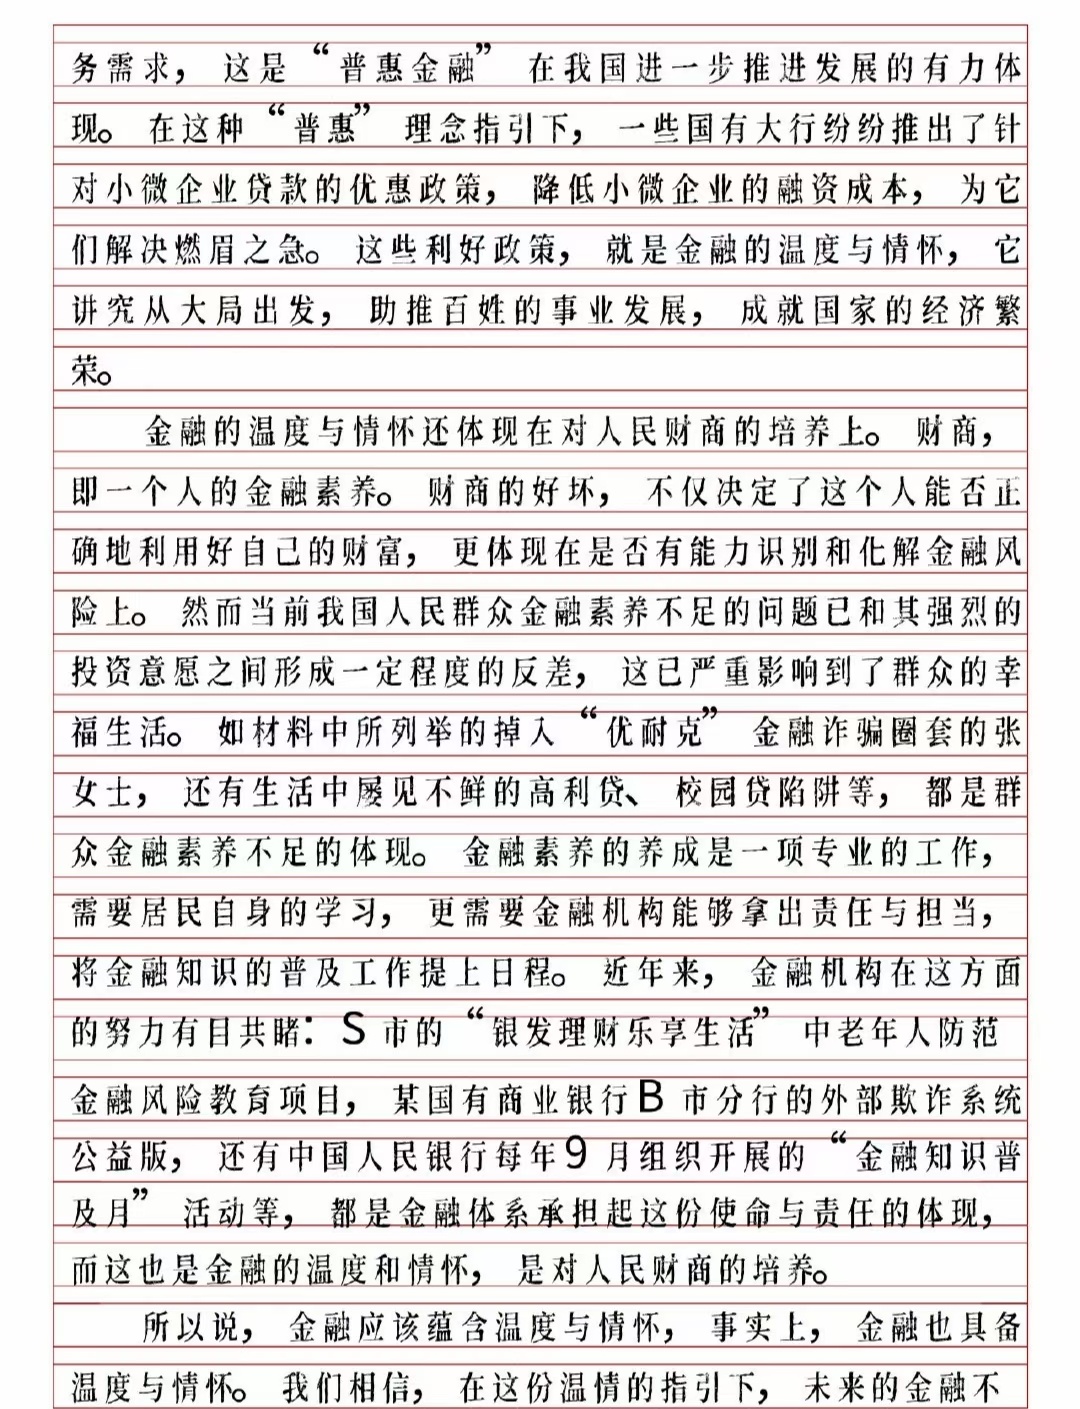 务需求，这是“普惠金融”在我国进一步推进发展的有力体
现。在这种“普惠”理念指引下，一些国有大行纷纷推出了针
对小微企业贷款的优惠政策，降低小微企业的融资成本，为它
们解决燃眉之急。这些利好政策，就是金融的温度与情怀，它
讲究从大局出发，助推百姓的事业发展，成就国家的经济繁
荣。
金融的温度与情怀还体现在对人民财商的培养上。财商，
即一个人的金融素养。财商的好坏，不仅决定了这个人能否正
确地利用好自己的财富，更体现在是否有能力识别和化解金融风
险上。然而当前我国人民群众金融素养不足的问题已和其强烈的
投资意愿之间形成一定程度的反差，这已严重影响到了群众的幸
福生活。如材料中所列举的掉入“优耐克”金融诈骗圈套的张
女士，还有生活中屡见不鲜的高利贷、校园贷陷阱等，都是群
众金融素养不足的体现。金融素养的养成是一项专业的工作，
需要居民自身的学习，更需要金融机构能够拿出责任与担当，
将金融知识的普及工作提上日程。近年来，金融机构在这方面
的努力有目共睹：S市的“银发理财乐享生活”中老年人防范
金融风险教育项目，某国有商业银行B市分行的外部欺诈系统
公益版，还有中国人民银行每年9月组织开展的“金融知识普
及月”活动等，都是金融体系承担起这份使命与责任的体现，
而这也是金融的温度和情怀，是对人民财商的培养。
所以说，金融应该蕴含温度与情怀，事实上，金融也具备
温度与情怀。我们相信，在这份温情的指引下，未来的金融不